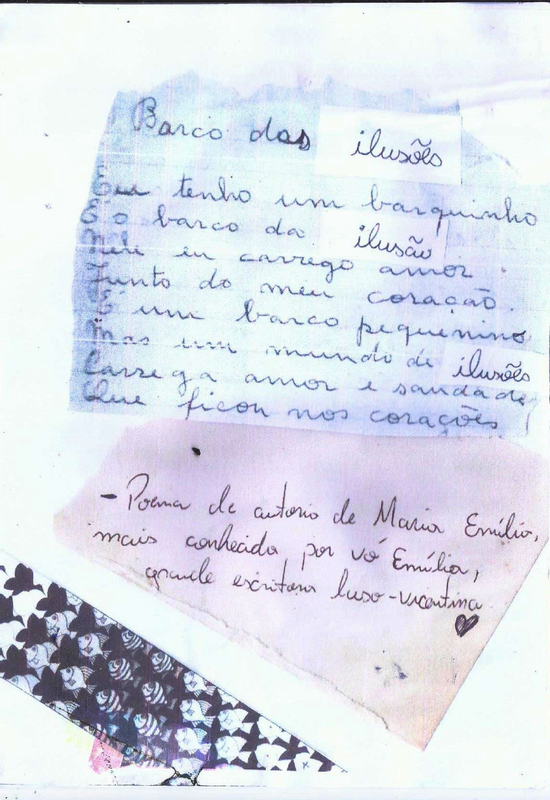 Barco das ilusões
Eu tenho um barquinho
É o barco da ilusão
Nele eu carrego amor
Junto do meu coração.
É um barco pequenino
Mas um mundo de ilusões
Carrega amor e saudade
Que ficou nos corações
- Poema de autoria de Maria Emília,
mais conhecida por vó Emília,
grande escritora luso-vicentina